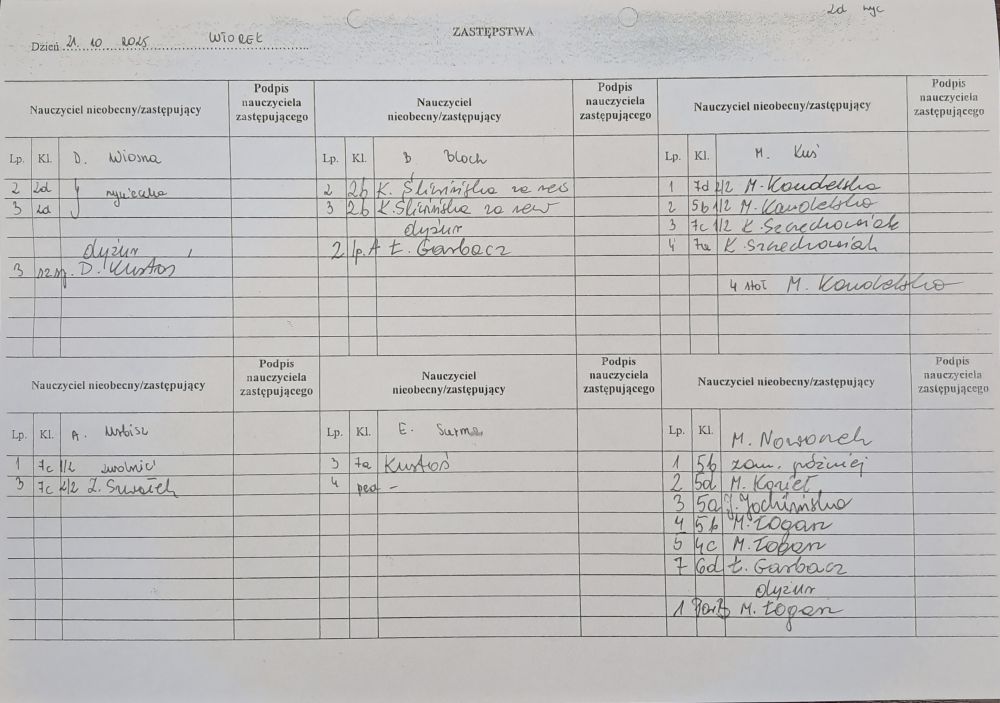 2d wyc
ZASTĘPSTWA
Dzień 21. 10 2025 WTOREK
Nauczyciel nieobecny/zastępujący
Podpis nauczyciela zastępującego
Lp. Kl. D. Wiosna
2 2d wycieczka
3 2d
dyżur
3 D. Kustoś
Nauczyciel nieobecny/zastępujący
Podpis nauczyciela zastępującego
Lp. Kl. B Bloch
2 2b K. Śliwińska za rew
3 2b K. Śliwińska za rew
dyżur
2 Ip. A Ł. Garbacz
Nauczyciel nieobecny/zastępujący
Podpis nauczyciela zastępującego
Lp. Kl. M. Kuś
1 7d 2/2 M. Kandelska
2 5b 1/2 M. Kandelska
3 7c 1/2 K. Szczechowiak
4 7a K. Szczechowiak
4 stoł M. Kandelska
Nauczyciel nieobecny/zastępujący
Podpis nauczyciela zastępującego
Lp. Kl. A. Urbisz
1 7c 1/2 zwolnić
3 7c 2/2
Nauczyciel nieobecny/zastępujący
Podpis nauczyciela zastępującego
Lp. Kl. E. Surma
3 7a Kustoś
4 ped -
Nauczyciel nieobecny/zastępujący
Podpis nauczyciela zastępującego
Lp. Kl. M. Nowonch
1 5b zam. później
2 5d M. Kozieł
3 5a J. Jochimska
4 5b M. Łogan
5 4c M. Łogan
7 6d Ł. Garbacz
dyżur
1 M. Łogan